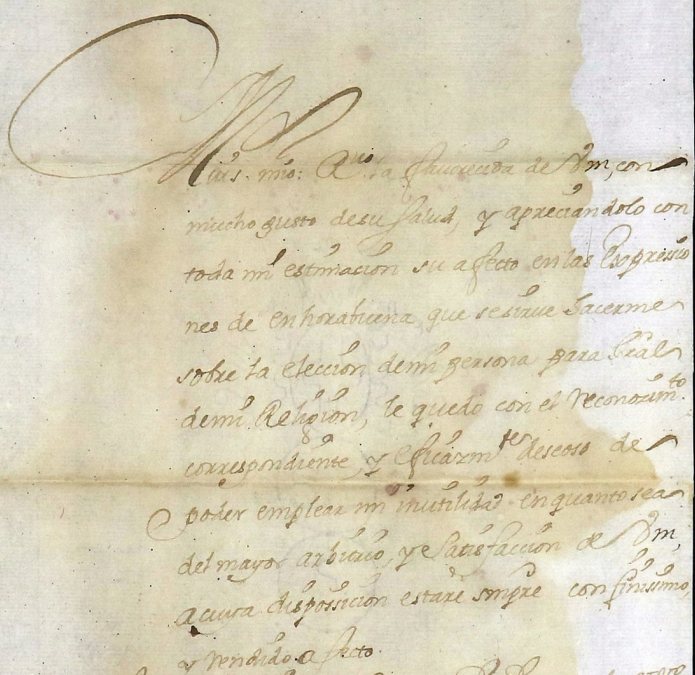 Muis. mio: R.vo la favorecida de Vm, con
mucho gusto de su salud, y apreciandolo con
toda mi estimación su afecto en las Expressio
nes de enhorabuena que se sirve hacerme
sobre la elección de mi persona para Gral
de mi Religión, le quedo con el reconocim.to
correspondiente, y eficazm.te deseoso de
poder emplear mi inutilidad en quanto sea
del mayor arbitrio, y satisfacción de Vm,
a cuya disposición estaré smpre con finisimo,
y rendido afecto.